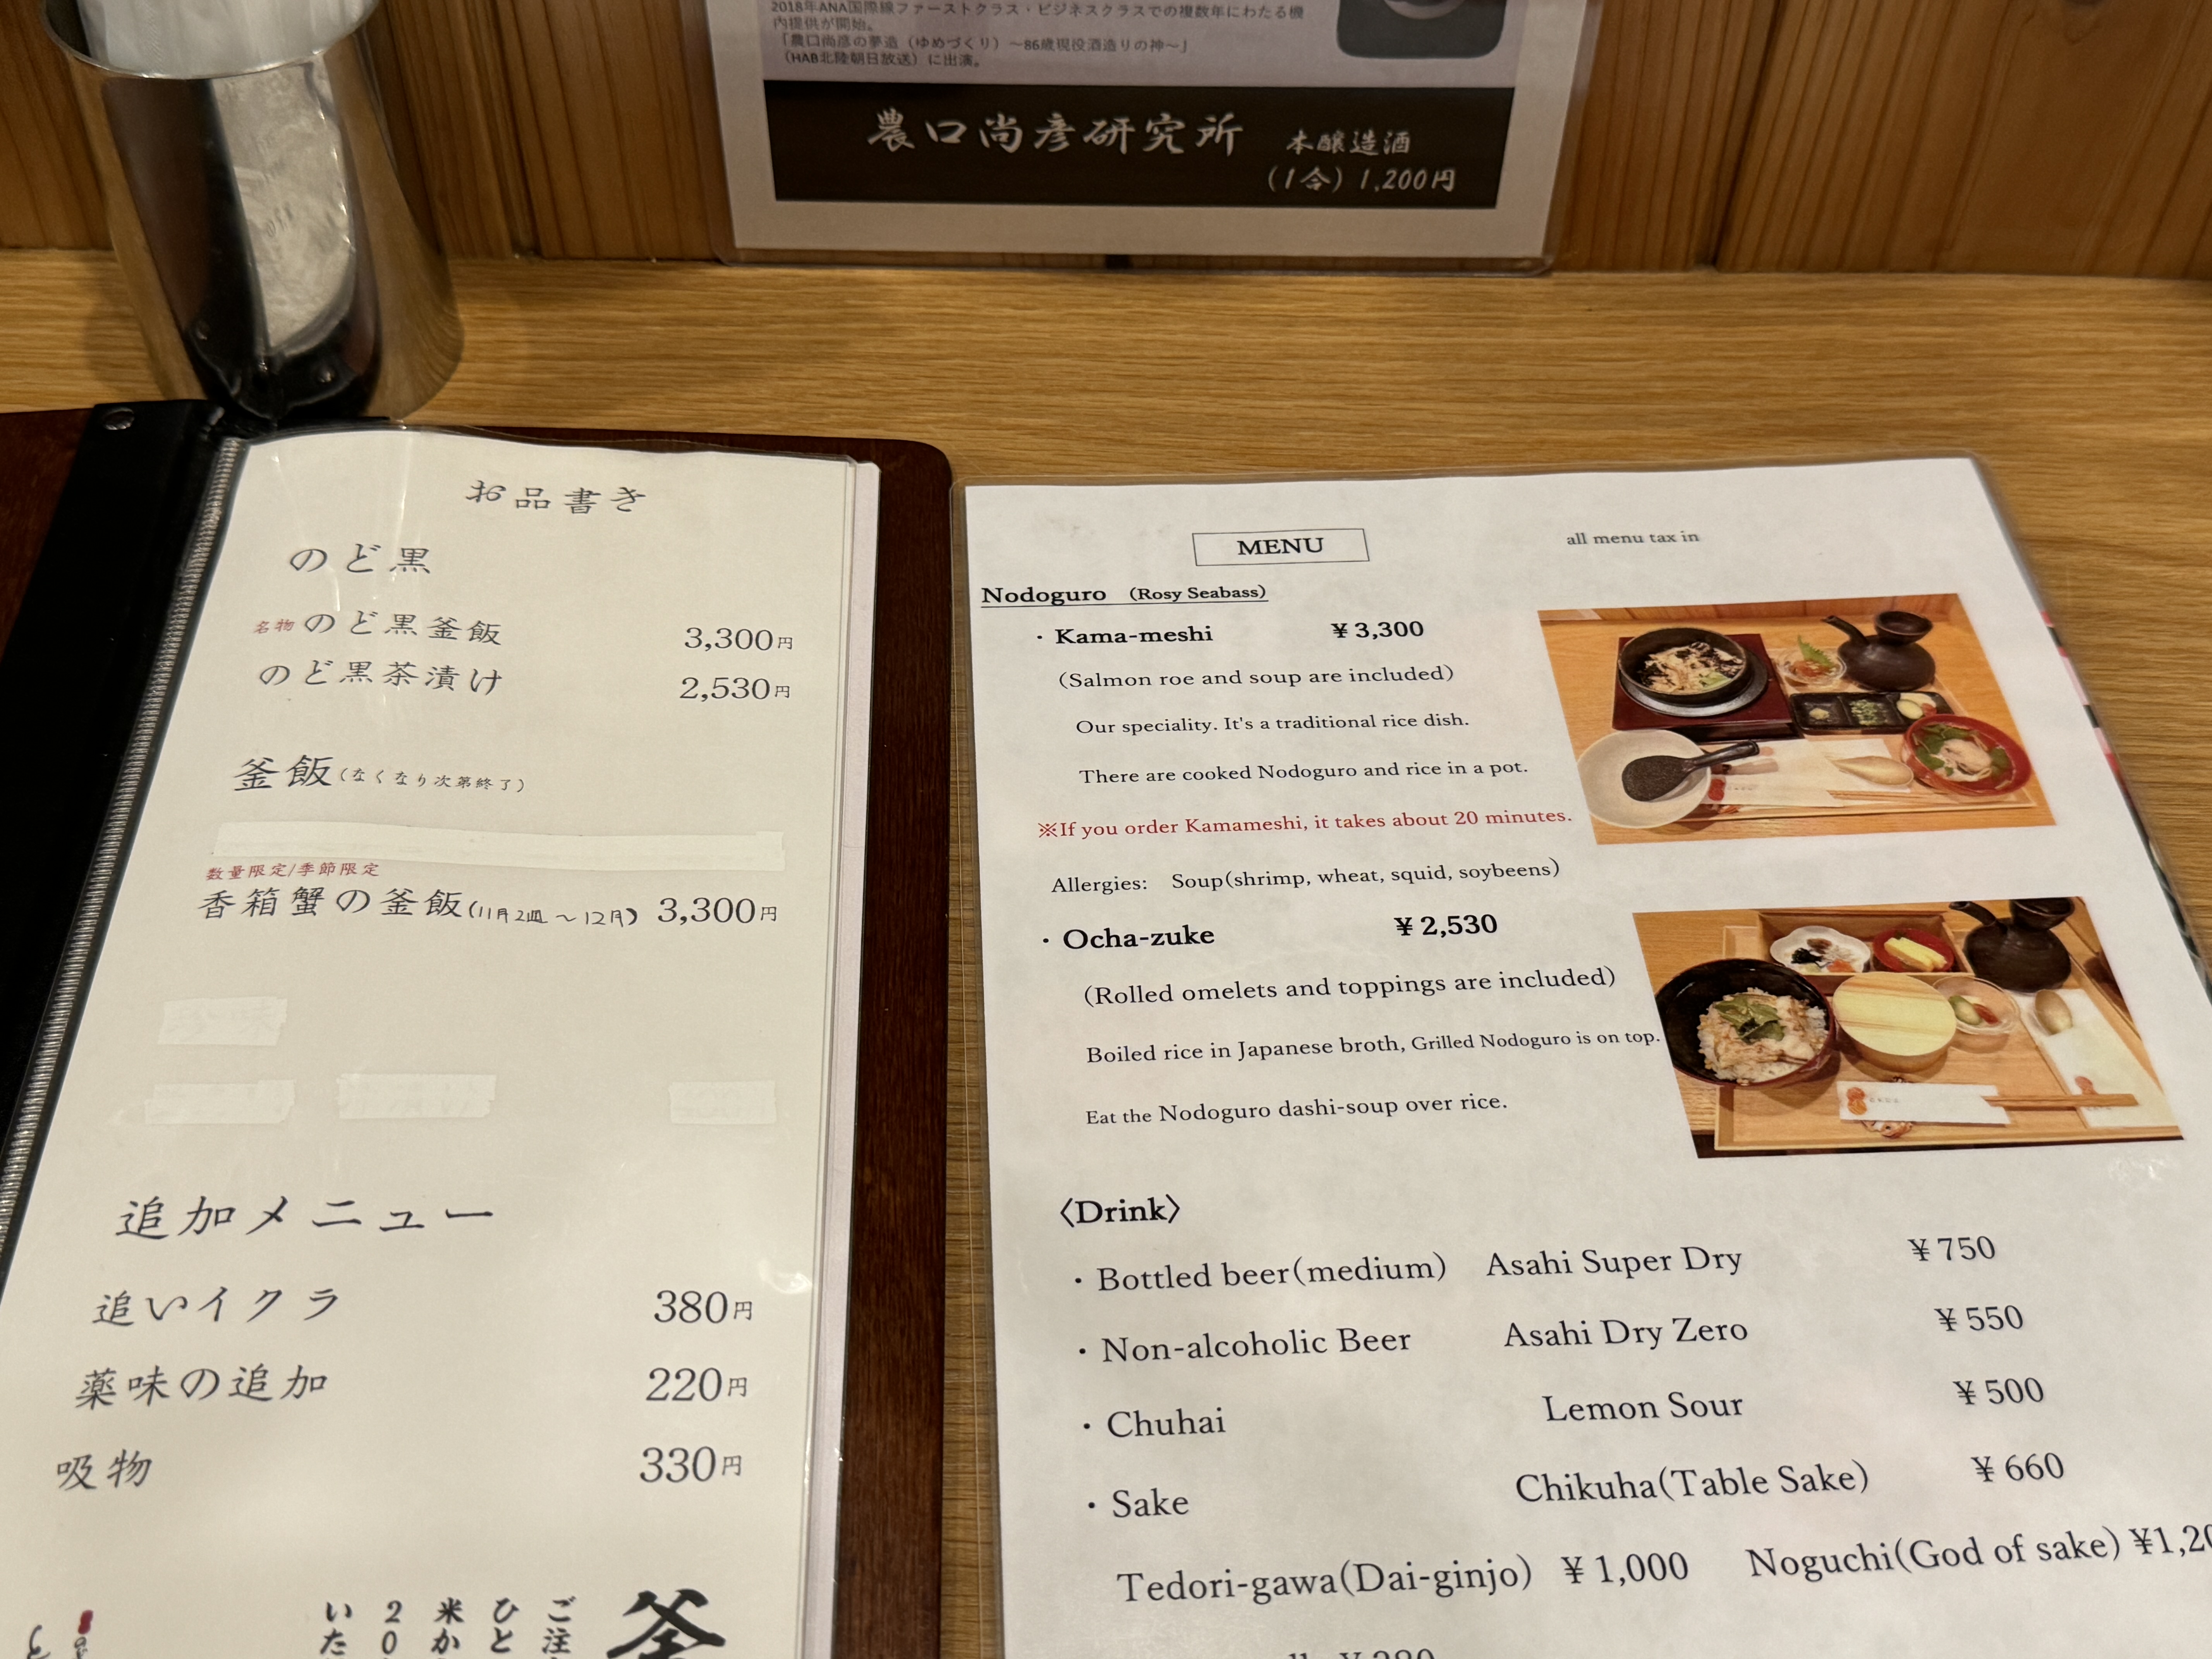 2018年ANA国際線ファーストクラス・ビジネスクラスでの複数年にわたる機
内提供が開始。
「農口尚彦の夢造（ゆめづくり）～86歳現役酒造りの神～」
（HAB北陸朝日放送）に出演。
農口尚彦研究所 本醸造酒
(1合) 1,200円
お品書き
のど黒
名物 のど黒釜飯 3,300円
のど黒茶漬け 2,530円
釜飯(なくなり次第終了)
数量限定/季節限定
香箱蟹の釜飯(11月2週～12月) 3,300円
追加メニュー
追いイクラ 380円
薬味の追加 220円
吸物 330円
釜
ご注
ひと
米か
20
いた
MENU
all menu tax in
Nodoguro (Rosy Seabass)
・Kama-meshi ¥3,300
(Salmon roe and soup are included)
Our speciality. It's a traditional rice dish.
There are cooked Nodoguro and rice in a pot.
※If you order Kamameshi, it takes about 20 minutes.
Allergies: Soup(shrimp, wheat, squid, soybeens)
・Ocha-zuke ¥2,530
(Rolled omelets and toppings are included)
Boiled rice in Japanese broth, Grilled Nodoguro is on top.
Eat the Nodoguro dashi-soup over rice.
〈Drink〉
・Bottled beer(medium) Asahi Super Dry ¥750
・Non-alcoholic Beer Asahi Dry Zero ¥550
・Chuhai Lemon Sour ¥500
・Sake Chikuha(Table Sake) ¥660
Tedori-gawa(Dai-ginjo) ¥1,000 Noguchi(God of sake) ¥1,20